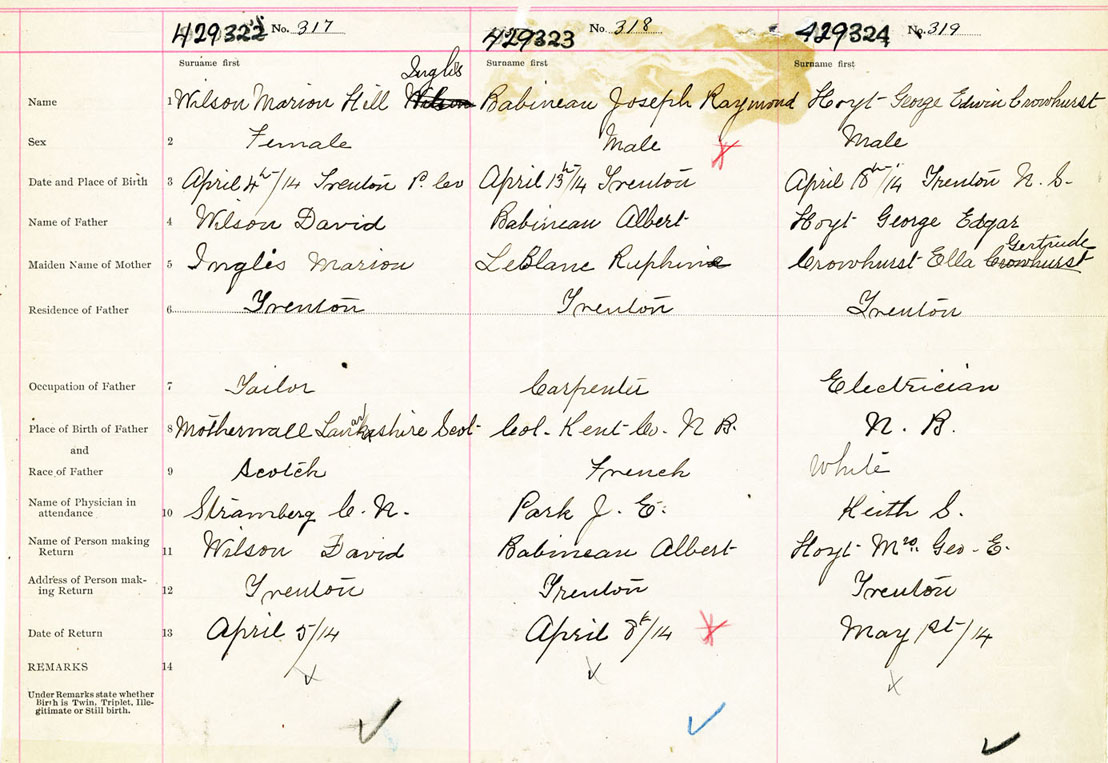 429322 No. 317 429323 No. 318 429324 No. 319
Surname first Surname first Surname first
Inglis
Name 1 Wilson Marion Hill Wilson Babineau Joseph Raymond Hoyt George Edwin Crowhurst
Sex 2 Female Male Male
Date and Place of Birth 3 April 4th/14 Trenton P. Co April 13th/14 Trenton April 18th/14 Trenton N. S.
Name of Father 4 Wilson David Babineau Albert Hoyt George Edgar
Gertrude
Maiden Name of Mother 5 Inglis Marion LeBlanc Ruphine Crowhurst Ella Crowhurst
Residence of Father 6 Trenton Trenton Trenton
Occupation of Father 7 Tailor Carpenter Electrician
Place of Birth of Father 8 Motherwall Lanarkshire Scot- Col. Kent Co. N B. N. B.
and
Race of Father 9 Scotch French White
Name of Physician in
attendance 10 Stramberg C. N. Park J. E. Keith S.
Name of Person making
Return 11 Wilson David Babineau Albert Hoyt Mrs. Geo. E.
Address of Person mak-
ing Return 12 Trenton Trenton Trenton
Date of Return 13 April 5/14 April 8th/14 May 1st/14
REMARKS 14
Under Remarks state whether
Birth is Twin, Triplet, Ille-
gitimate or Still birth.